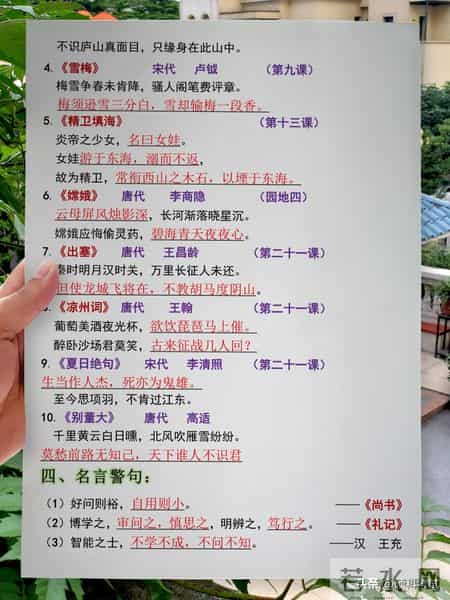 不识庐山真面目，只缘身在此山中。
4.《雪梅》 宋代 卢钺 （第九课）
梅雪争春未肯降，骚人阁笔费评章。
梅须逊雪三分白，雪却输梅一段香。
5.《精卫填海》 （第十三课）
炎帝之少女，名曰女娃。
女娃游于东海，溺而不返，
故为精卫，常衔西山之木石，以堙于东海。
6.《嫦娥》 唐代 李商隐 （园地四）
云母屏风烛影深，长河渐落晓星沉。
嫦娥应悔偷灵药，碧海青天夜夜心。
7.《出塞》 唐代 王昌龄 （第二十一课）
秦时明月汉时关，万里长征人未还。
但使龙城飞将在，不教胡马度阴山。
8.《凉州词》 唐代 王翰 （第二十一课）
葡萄美酒夜光杯，欲饮琵琶马上催。
醉卧沙场君莫笑，古来征战几人回？
9.《夏日绝句》 宋代 李清照 （第二十一课）
生当作人杰，死亦为鬼雄。
至今思项羽，不肯过江东。
10.《别董大》 唐代 高适
千里黄云白日曛，北风吹雁雪纷纷。
莫愁前路无知己，天下谁人不识君
四、名言警句：
（1）好问则裕，自用则小。 ——《尚书》
（2）博学之，审问之，慎思之，明辨之，笃行之。 ——《礼记》
（3）智能之士，不学不成，不问不知。 ——汉 王充